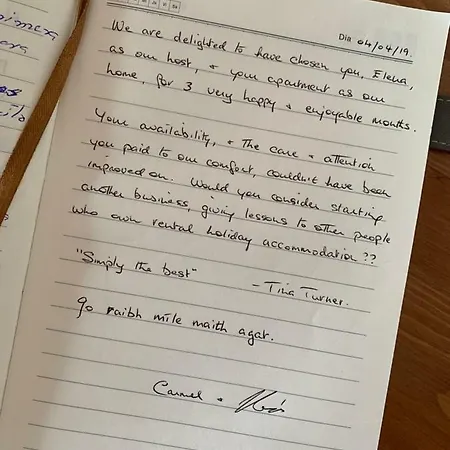 Dia 04/04/19
We are delighted to have chosen you, Elena,
as our host, & your apartment as our
home, for 3 very happy & enjoyable months.
Your availability, & the care & attention
you paid to our comfort, couldn't have been
improved on. Would you consider starting
another business, giving lessons to other people
who own rental holiday accommodation??
"Simply the best"
- Tina Turner.
go raibh míle maith agat.
Carmel &